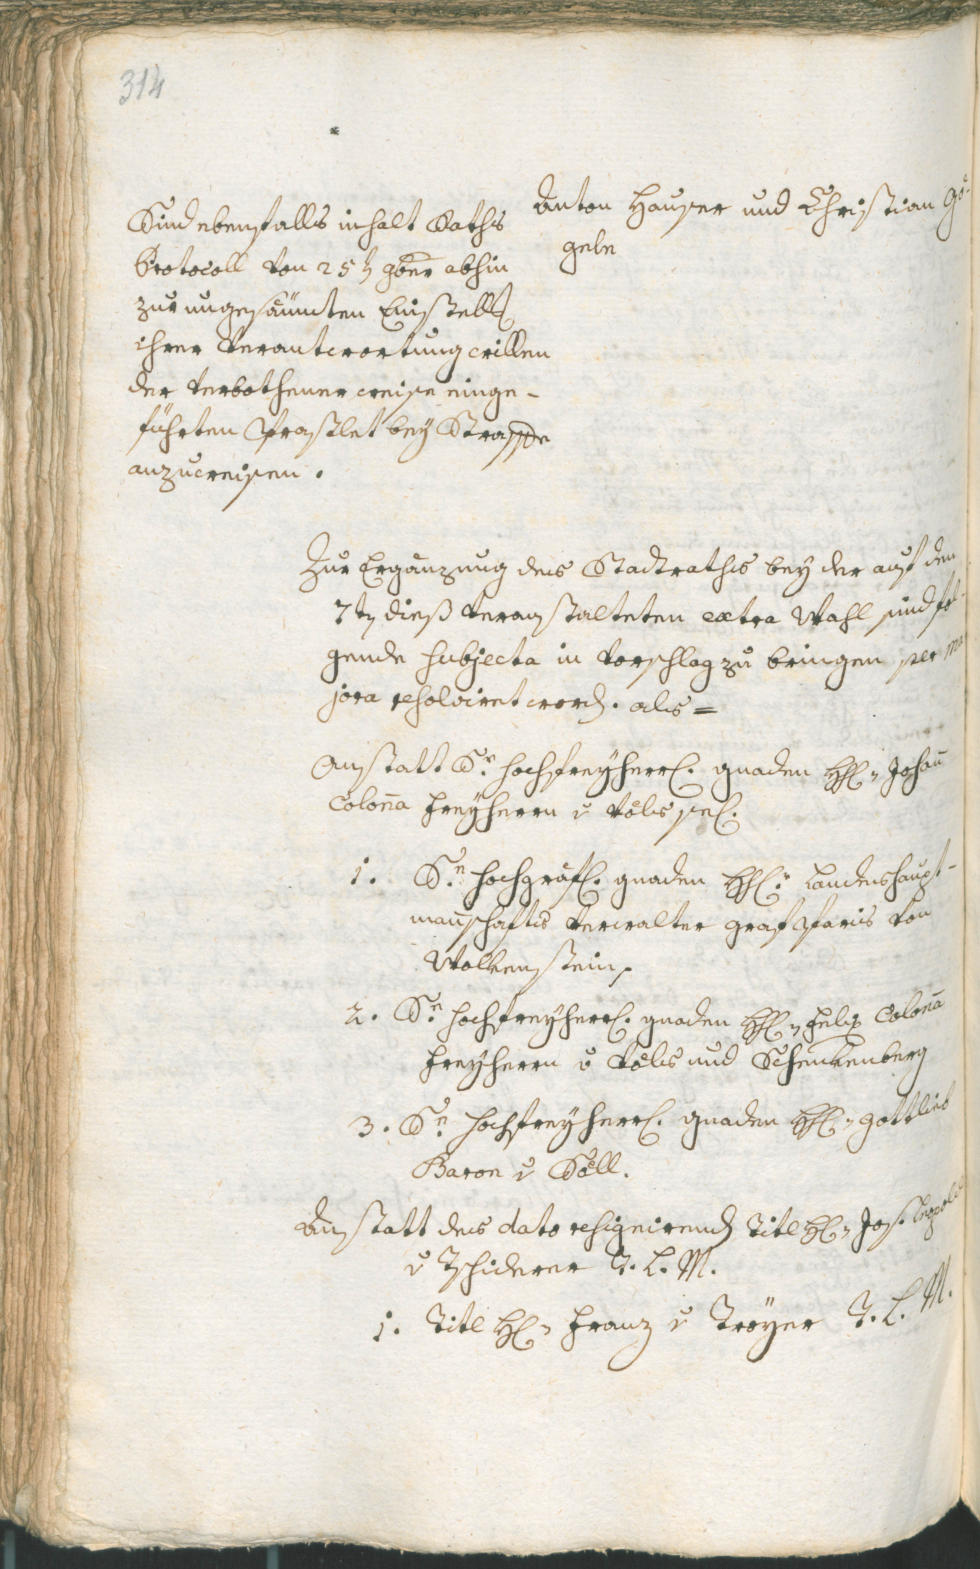 314
Anton Hauser und Christian Gö-
gele
Sind ebenfalls inhalt Raths
Protocoll von 25t 9ber abhin
zur ungesäumten Einstell
ihrer Verantwortung willen
der verbothener weise einge-
führten Prastlet bey Straffe
anzuweisen.
Zur Ergänzung des Stadtraths bey der auf den
7t dieß veranstalteten extra Wahl sind fol-
gende subjecta in Vorschlag zu bringen per ma-
jora resolviret word. als =
Anstatt Sr. hochfreyherrl. gnaden H: Johañ
Coloña freyherrn v Völs sel.
1. Sn. hochgräfl. gnaden H: Landeshaupt-
mañschafts Verwalter graf Paris von
Wolkenstein.
2. Sn. hochfreyherrl. gnaden H: Felix Coloña
freyherrn v Völs und Schenkenberg
3. Sn. hochfreyherrl. gnaden H: Gottlieb
Baron v Söll.
Anstatt des dato resignirend Titl H: Jos. Leopold
v Tschiderer T. L. M.
1. Titl H: Franz v Troyer T. L. M.